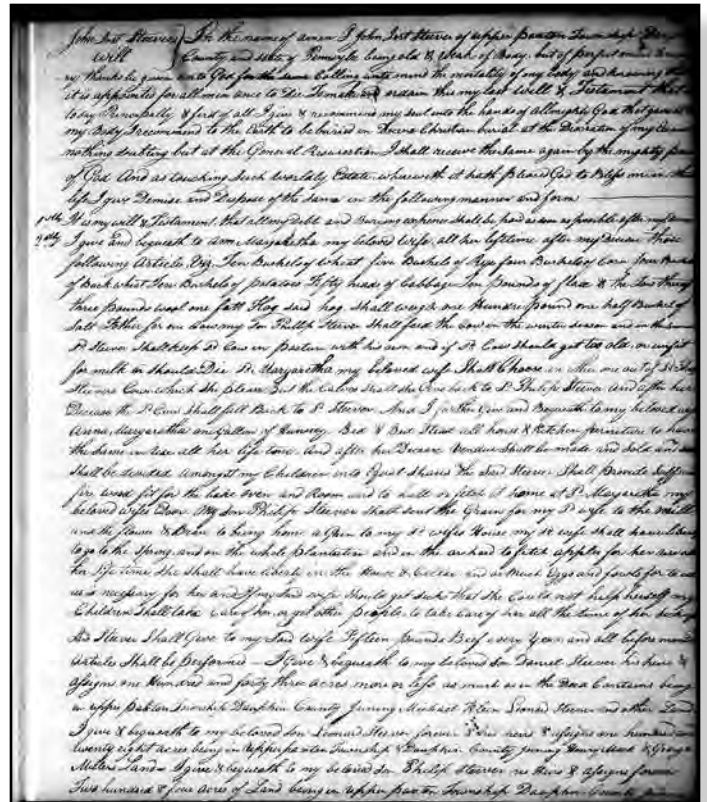 John Just Steevers } In the name of amen I John Just Steever of upper paxton Township
Will County and state of Pennsylv being old & weak of Body, but of perfect mind &
thanks be given unto God for the same Calling unto mind the mortality of my body and knowing that
it is appointed for all men once to Die Do make and ordain this my last will & Testament that
to say Principally & first of all I give & recommend my soul unto the hands of Allmighty God that gave it
my Body I recommend to the Earth to be buried in Decent Christian burial at the Discretion of my
nothing doubting but at the General Resurrection I shall receive the same again by the mighty power
of God And as touching such worldly Estate wherewith it hath pleased God to Bless me in this
life I give Demise and Dispose of the same in the following manner and form
It is my will & Testament, that all my debt and Burring expence shall be paid as soon as possible after my
I give and bequeath to Ann Margaretha my beloved wife, all her lifetime after my Decease those
following Articles, Viz. Ten Bushels of Wheat five Bushels of Rye four Bushels of Corn four
of Buckwheat Ten Bushels of potatoes Fifty heads of Cabbage Ten pounds of flax & Tow
three pounds wool one fatt Hog said hog shall weigh one Hundred pound one half Bushel of
Salt Fother for one Cow my Son Phillip Steever shall feed the Cow in the winter season and in the
Sd Steever shall keep sd Cow in pasture with his own and if sd Cow should get too old, or unfit
for milk or should Die Sd Margaretha my beloved wife Shall Choose
Steevers Cows which she please But the Calves shall she Give back to Sd Philip Steever and after her
Decease the Sd Cow shall fall Back to Sd Steever. And I further Give and Bequeath to my beloved wife
Anna Margaretha one Gallon of Hunney. Bed & Bed Stead all house & Kitchen furniture to have
the same in use all her life time and after her Decease Vendue shall be made and sold and
shall be divided amongst my Children into Equal Shares the Said Steever Shall Provide
fire wood fit for the bake oven and Room and to hall or fetch it home at Sd Margaretha my
beloved wifes Door. My Son Philip Steever shall the Grain for my Sd wife to the mill
and the flower & Bran to bring home again to my Sd wifes House my Sd wife shall have liberty
to go to the Spring and on the whole plantation and in the orchard to fetch apples for her
her life time she shall have liberty in the House & Cellar and as much Eggs and fowls for to use
as is necessary for her and if my said wife should get sick that she could not help herself my
Children shall take care of her or get other people to take care of her all the time of her
Sd Steever Shall Give to my Said wife Fifteen pounds Beef every year and all before
articles shall be performed — I Give & bequeath to my beloved son Daniel Steever his heirs &
assigns one hundred and forty three acres more or less as much as in the Deed Contains being
in upper paxton Township Dauphin County Joining Michael Klein Leonard Steever and other Land
I give & bequeath to my beloved son Leonard Steever forever & his heirs & assigns one hundred and
twenty eight acres being in upper paxton Township & Dauphin County Joining Henry & George
Millers Land I give & bequeath to my beloved son Philip Steever his Heirs & assigns forever
Two hundred & four acres of Land being in upper paxton Township Dauphin County